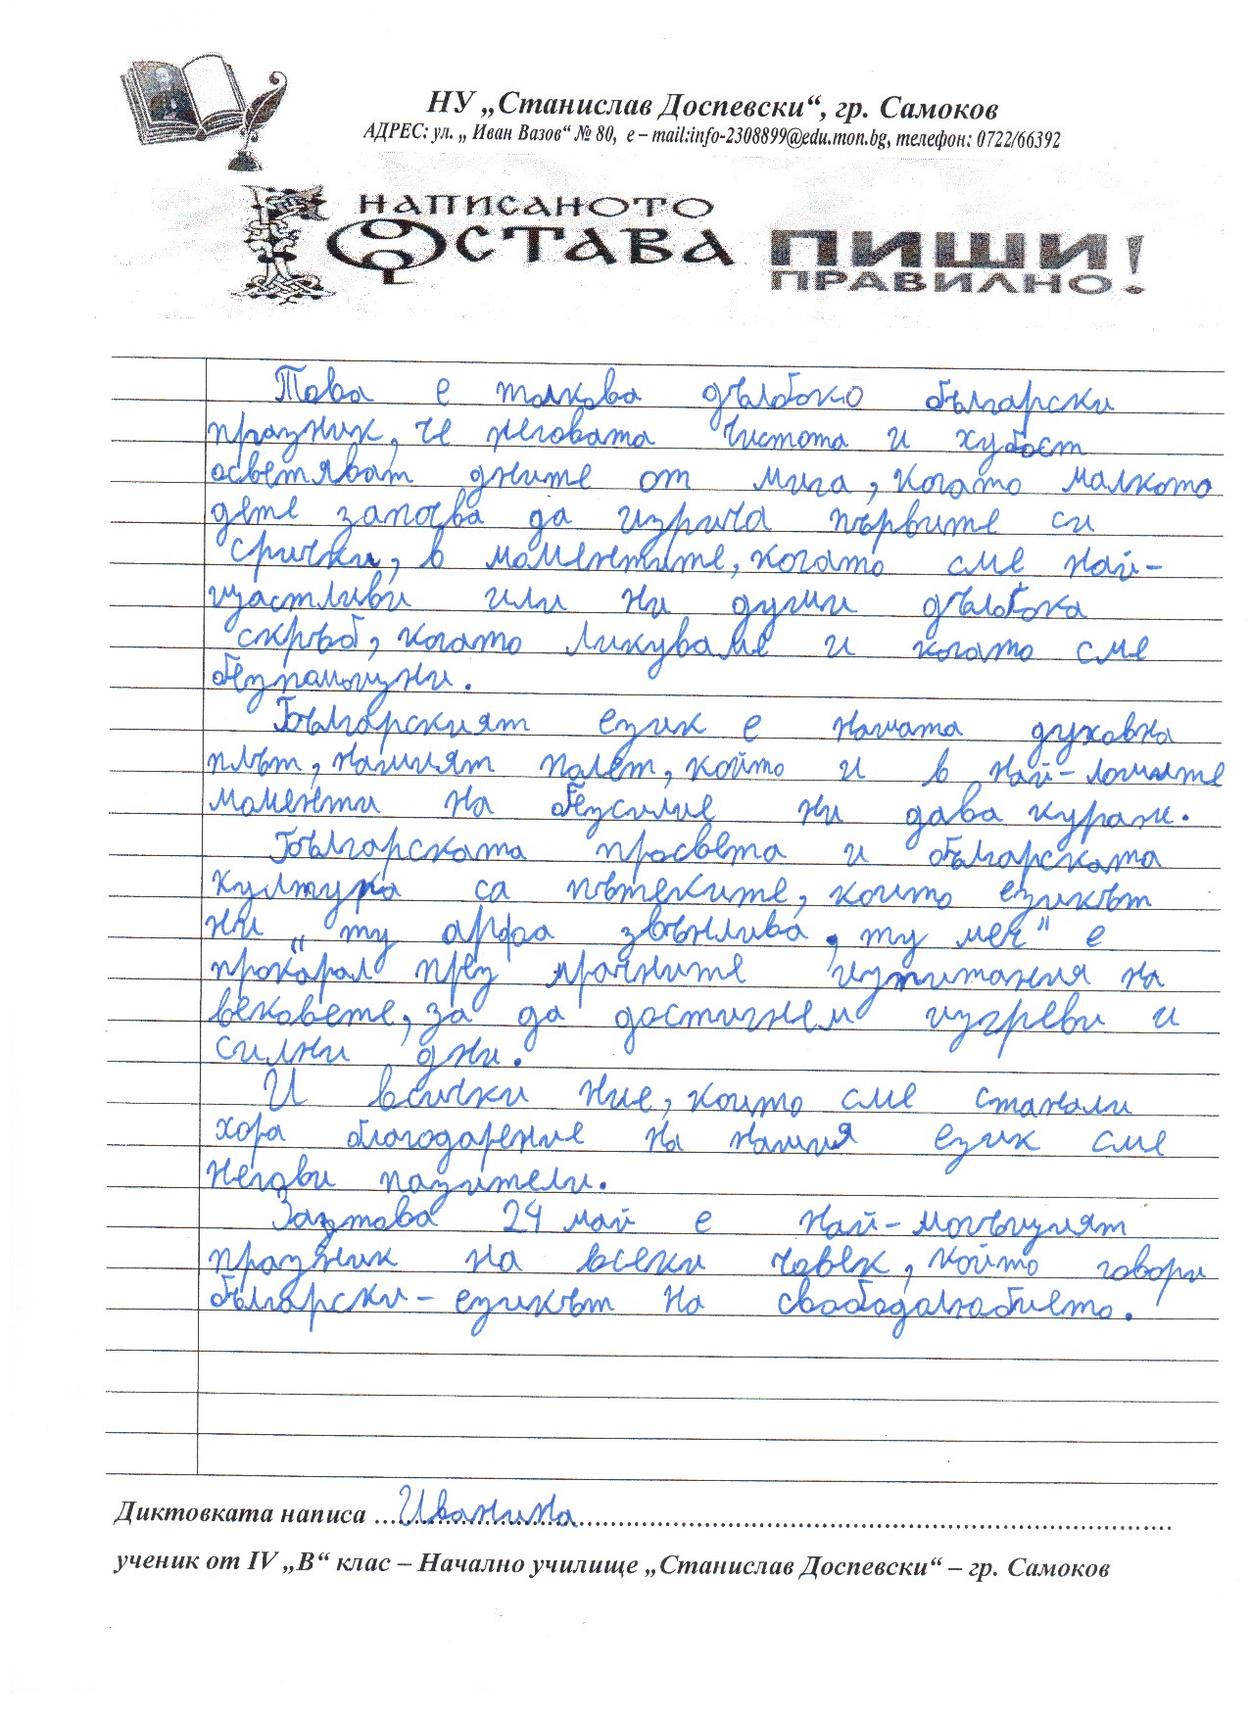 НУ „Станислав Доспевски“, гр. Самоков
АДРЕС: ул. „ Иван Вазов“ № 80, e – mail:info-2308899@edu.mon.bg, телефон: 0722/66392
НАПИСАНОТО
ОСТАВА ПИШИ
ПРАВИЛНО!
Това е толкова дълбоко български
празник, че неговата чистота и хубост
осветяват дните от мига, когато малкото
дете започва да изрича първите си
срички, в моментите, когато сме най-
щастливи или ни души дълбока
скръб, когато ликуваме и когато сме
безпомощни.
Българският език е нашата духовна
плът, нашият полет, който и в най-лошите
моменти на безсилие ни дава кураж.
Българската просвета и българската
култура са пътеките, които езикът
ни „ту арфа звънлива, ту меч" е
прокарал през мрачните изпитания на
вековете, за да достигнем изгреви и
силни дни.
И всички ние, които сме станали
хора благодарение на нашия език сме
негови пазители.
Затова 24 май е най-могъщият
празник на всеки човек, който говори
български - езикът на свободолюбието.
Диктовката написа Иванина
ученик от IV „В“ клас – Начално училище „Станислав Доспевски“ – гр. Самоков